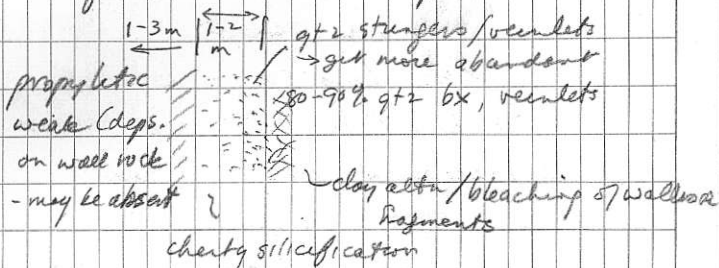 1-3m 1-2 m
qtz stringers/veinlets
→ get more abandant
80-90% qtz bx, veinlets
propylitic
weak (deps.
on wall rock
- may be absent
clay altn/bleaching of wallrock
fragments
cherty silicification